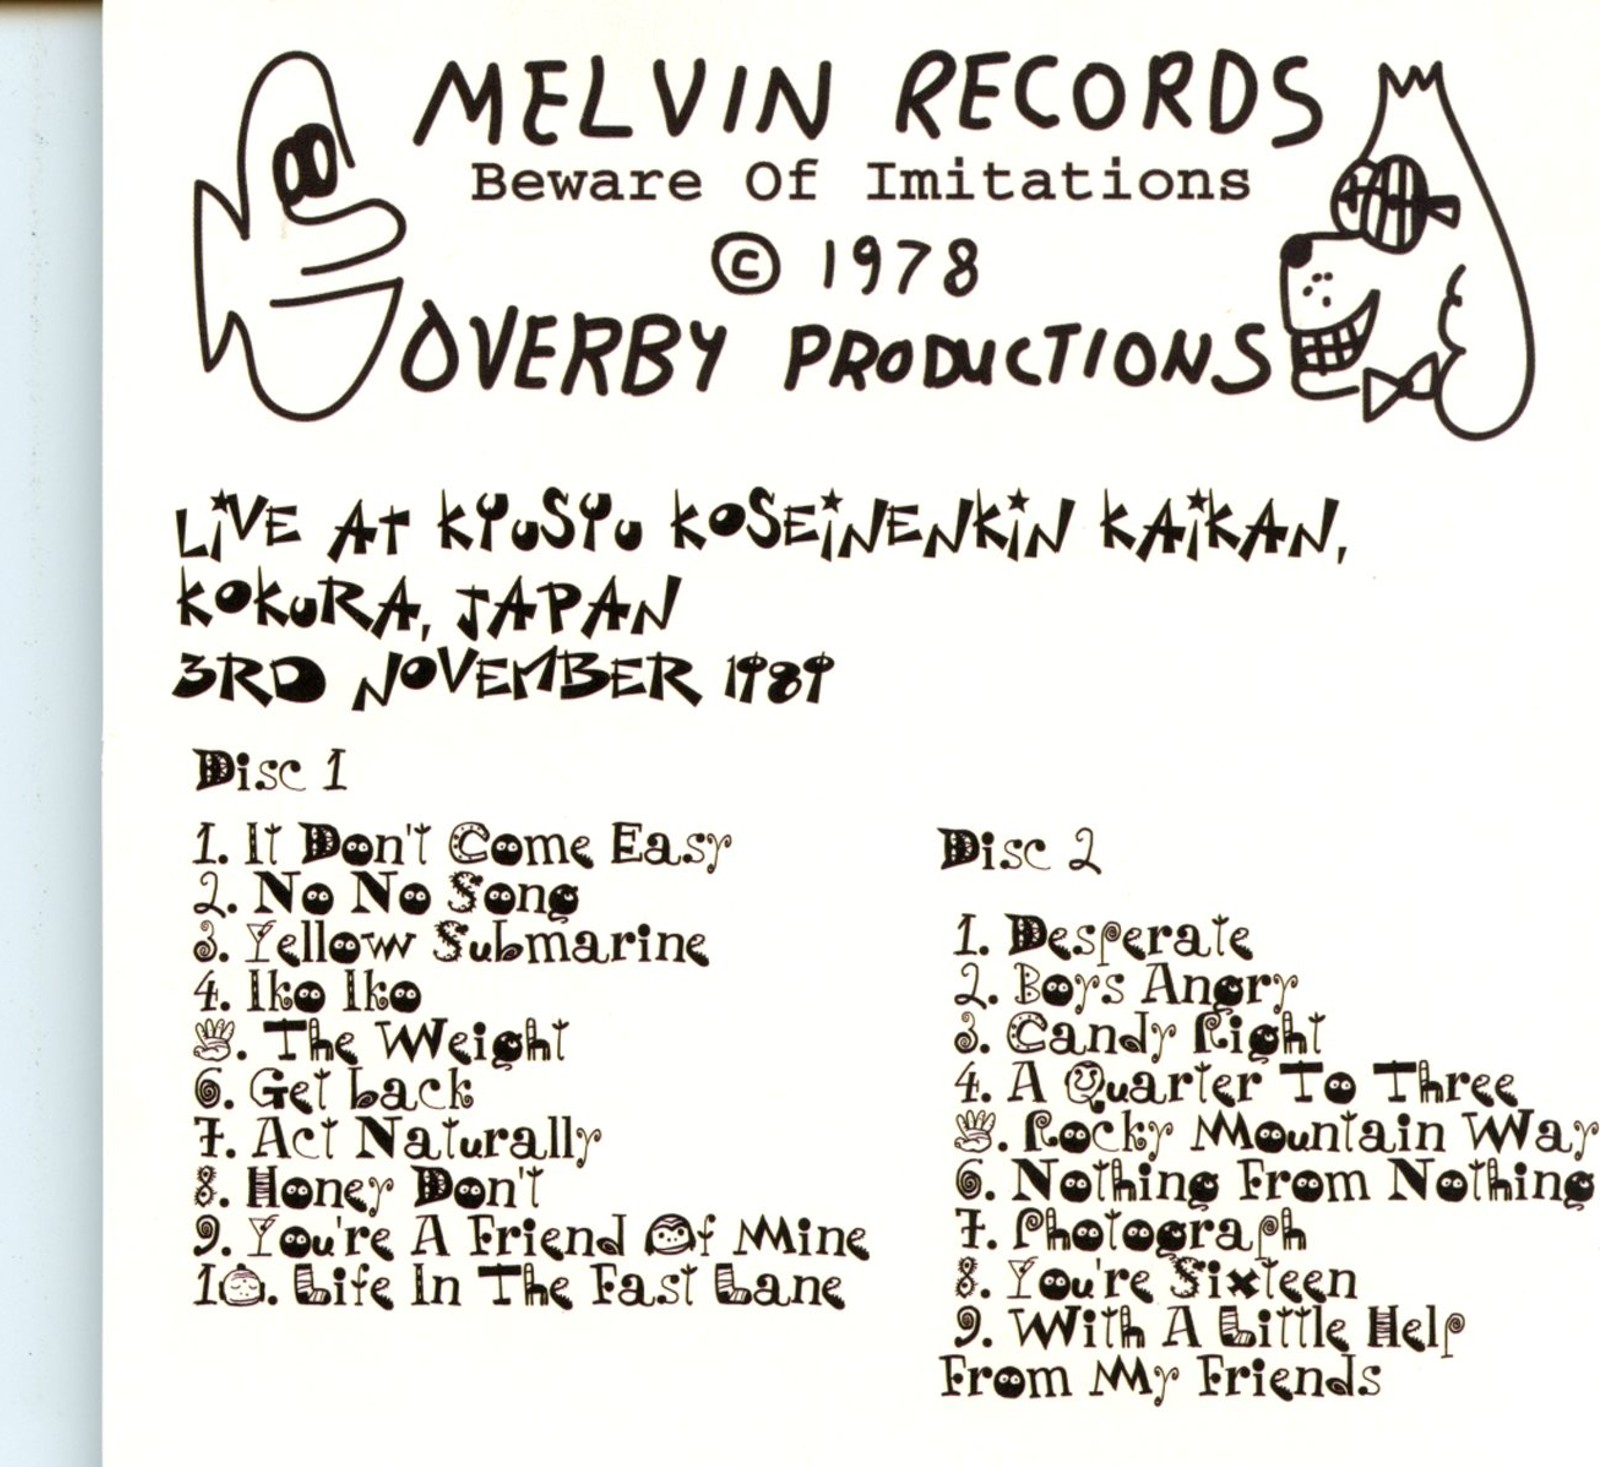 MELVIN RECORDS
Beware Of Imitations
© 1978
OVERBY PRODUCTIONS
LiVE AT KYUSYU KOSEiNENKiN KAiKAN,
KOKURA, JAPAN
3RD NOVEMBER 1989
Disc 1
1. It Don't Come Easy
2. No No Song
3. Yellow Submarine
4. Iko Iko
5. The Weight
6. Get back
7. Act Naturally
8. Honey Don't
9. You're A Friend Of Mine
10. Life In The Fast Lane
Disc 2
1. Desperate
2. Boys Angry
3. Candy Right
4. A Quarter To Three
5. Rocky Mountain Way
6. Nothing From Nothing
7. Photograph
8. You're Sixteen
9. With A Little Help
From My Friends